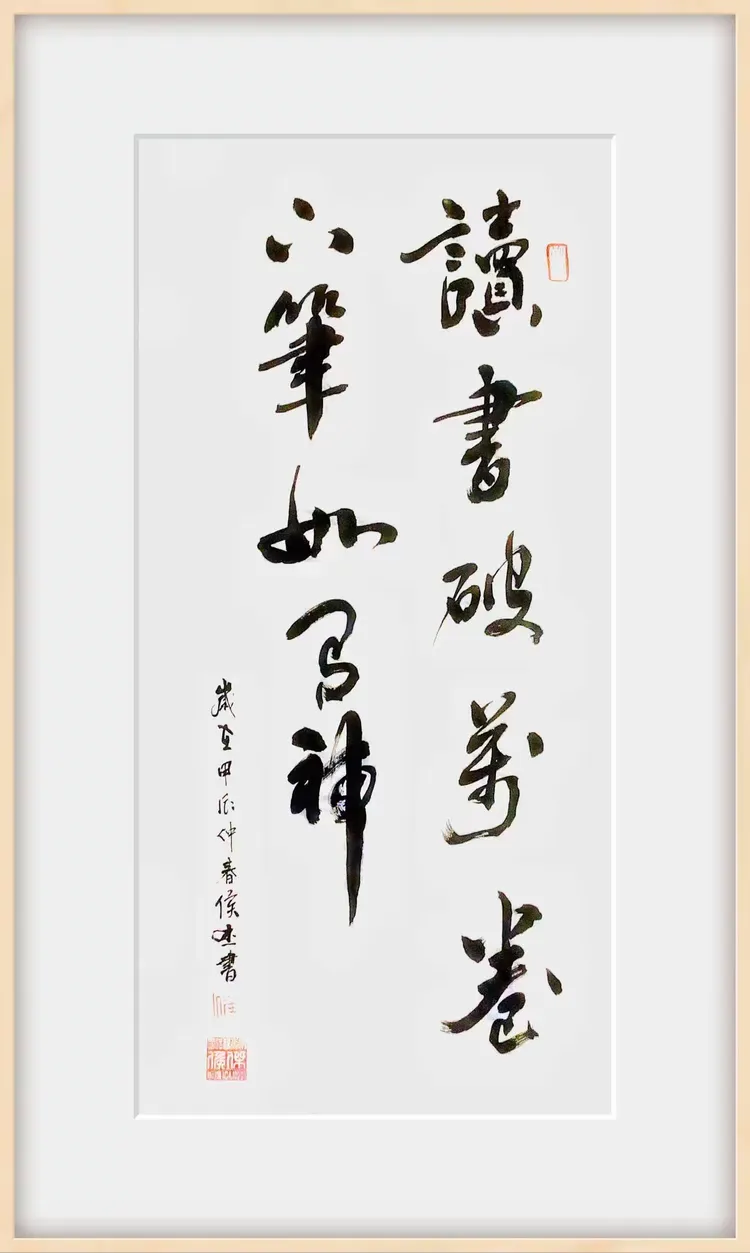 讀書破萬卷
下筆如有神
歲在甲辰仲春侯杰書